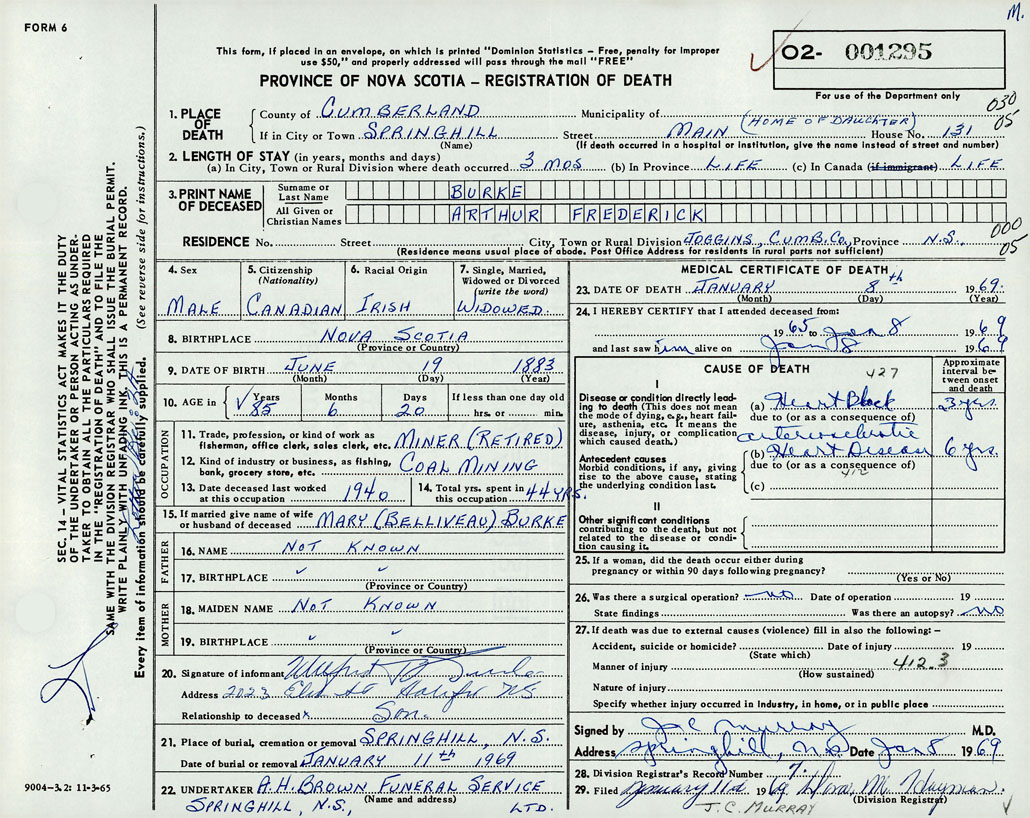 M.
FORM 6
This form, if placed in an envelope, on which is printed "Dominion Statistics – Free, penalty for improper
use $50," and properly addressed will pass through the mail "FREE"
PROVINCE OF NOVA SCOTIA – REGISTRATION OF DEATH
O2- 001295
For use of the Department only
030
05
1. PLACE OF DEATH
County of CUMBERLAND Municipality of
(HOME OF DAUGHTER)
If in City or Town SPRINGHILL Street MAIN House No. 131
(Name) (If death occurred in a hospital or institution, give the name instead of street and number)
2. LENGTH OF STAY (in years, months and days)
(a) In City, Town or Rural Division where death occurred 3 MOS (b) In Province LIFE (c) In Canada (if immigrant) LIFE
3. PRINT NAME OF DECEASED
Surname or Last Name BURKE
All Given or Christian Names ARTHUR FREDERICK
000
05
RESIDENCE No. Street City, Town or Rural Division JOGGINS, CUMB. CO. Province N.S.
(Residence means usual place of abode. Post Office Address for residents in rural parts not sufficient)
4. Sex MALE
5. Citizenship (Nationality) CANADIAN
6. Racial Origin IRISH
7. Single, Married, Widowed or Divorced (write the word) WIDOWED.
8. BIRTHPLACE NOVA SCOTIA
(Province or Country)
9. DATE OF BIRTH JUNE 19 1883
(Month) (Day) (Year)
10. AGE in Years 85 Months 6 Days 20 If less than one day old
hrs. or min.
OCCUPATION
11. Trade, profession, or kind of work as
fisherman, office clerk, sales clerk, etc. MINER (RETIRED)
12. Kind of industry or business, as fishing,
bank, grocery store, etc. COAL MINING
13. Date deceased last worked at this occupation 1940
14. Total yrs. spent in this occupation 44 YRS.
15. If married give name of wife
or husband of deceased MARY (BELLIVEAU) BURKE
FATHER
16. NAME NOT KNOWN
17. BIRTHPLACE
(Province or Country)
MOTHER
18. MAIDEN NAME NOT KNOWN
19. BIRTHPLACE
(Province or Country)
20. Signature of informant
Address 2023 Elm St Halifax NS
Relationship to deceased Son.
21. Place of burial, cremation or removal SPRINGHILL, N.S.
Date of burial or removal JANUARY 11th 1969
22. UNDERTAKER A.H. BROWN FUNERAL SERVICE
(Name and address)
SPRINGHILL, N.S., LTD.
MEDICAL CERTIFICATE OF DEATH
23. DATE OF DEATH JANUARY 8th 1969.
(Month) (Day) (Year)
24. I HEREBY CERTIFY that I attended deceased from:
1965 to Jan 8 1969
and last saw him alive on Jan 8 1969
CAUSE OF DEATH 427
Approximate interval between onset and death
I
Disease or condition directly leading to death (This does not mean the mode of dying, e.g., heart failure, asthenia, etc. It means the disease, injury, or complication which caused death.)
(a) Heart Block 3 yrs.
due to (or as a consequence of)
arteriosclerotic
(b) Heart Disease 6 yrs.
due to (or as a consequence of)
412
(c)
Antecedent causes
Morbid conditions, if any, giving rise to the above cause, stating the underlying condition last.
II
Other significant conditions
contributing to the death, but not related to the disease or condition causing it.
25. If a woman, did the death occur either during
pregnancy or within 90 days following pregnancy?
(Yes or No)
26. Was there a surgical operation? no Date of operation 19
State findings Was there an autopsy? no
27. If death was due to external causes (violence) fill in also the following: –
Accident, suicide or homicide? Date of injury 19
(State which)
412.3
Manner of injury
(How sustained)
Nature of injury
Specify whether injury occurred in Industry, in home, or in public place
Signed by J.C. Murray M.D.
Address Springhill, N.S. Date Jan 8 1969
28. Division Registrar's Record Number 7.
29. Filed January 11th 1969
(Division Registrar)
J.C. MURRAY
SEC. 14 – VITAL STATISTICS ACT MAKES IT THE DUTY
OF THE UNDERTAKER OR PERSON ACTING AS UNDER-
TAKER TO OBTAIN ALL THE PARTICULARS REQUIRED
IN THE "REGISTRATION OF DEATH" AND TO FILE THE
SAME WITH THE DIVISION REGISTRAR WHO SHALL ISSUE THE BURIAL PERMIT.
WRITE PLAINLY WITH UNFADING INK. THIS IS A PERMANENT RECORD.
Every item of information should be carefully supplied. (See reverse side for instructions.)
9004-3.2: 11-3-65